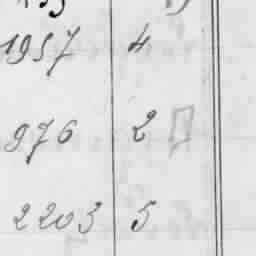 1957 4
976 2
2203 5